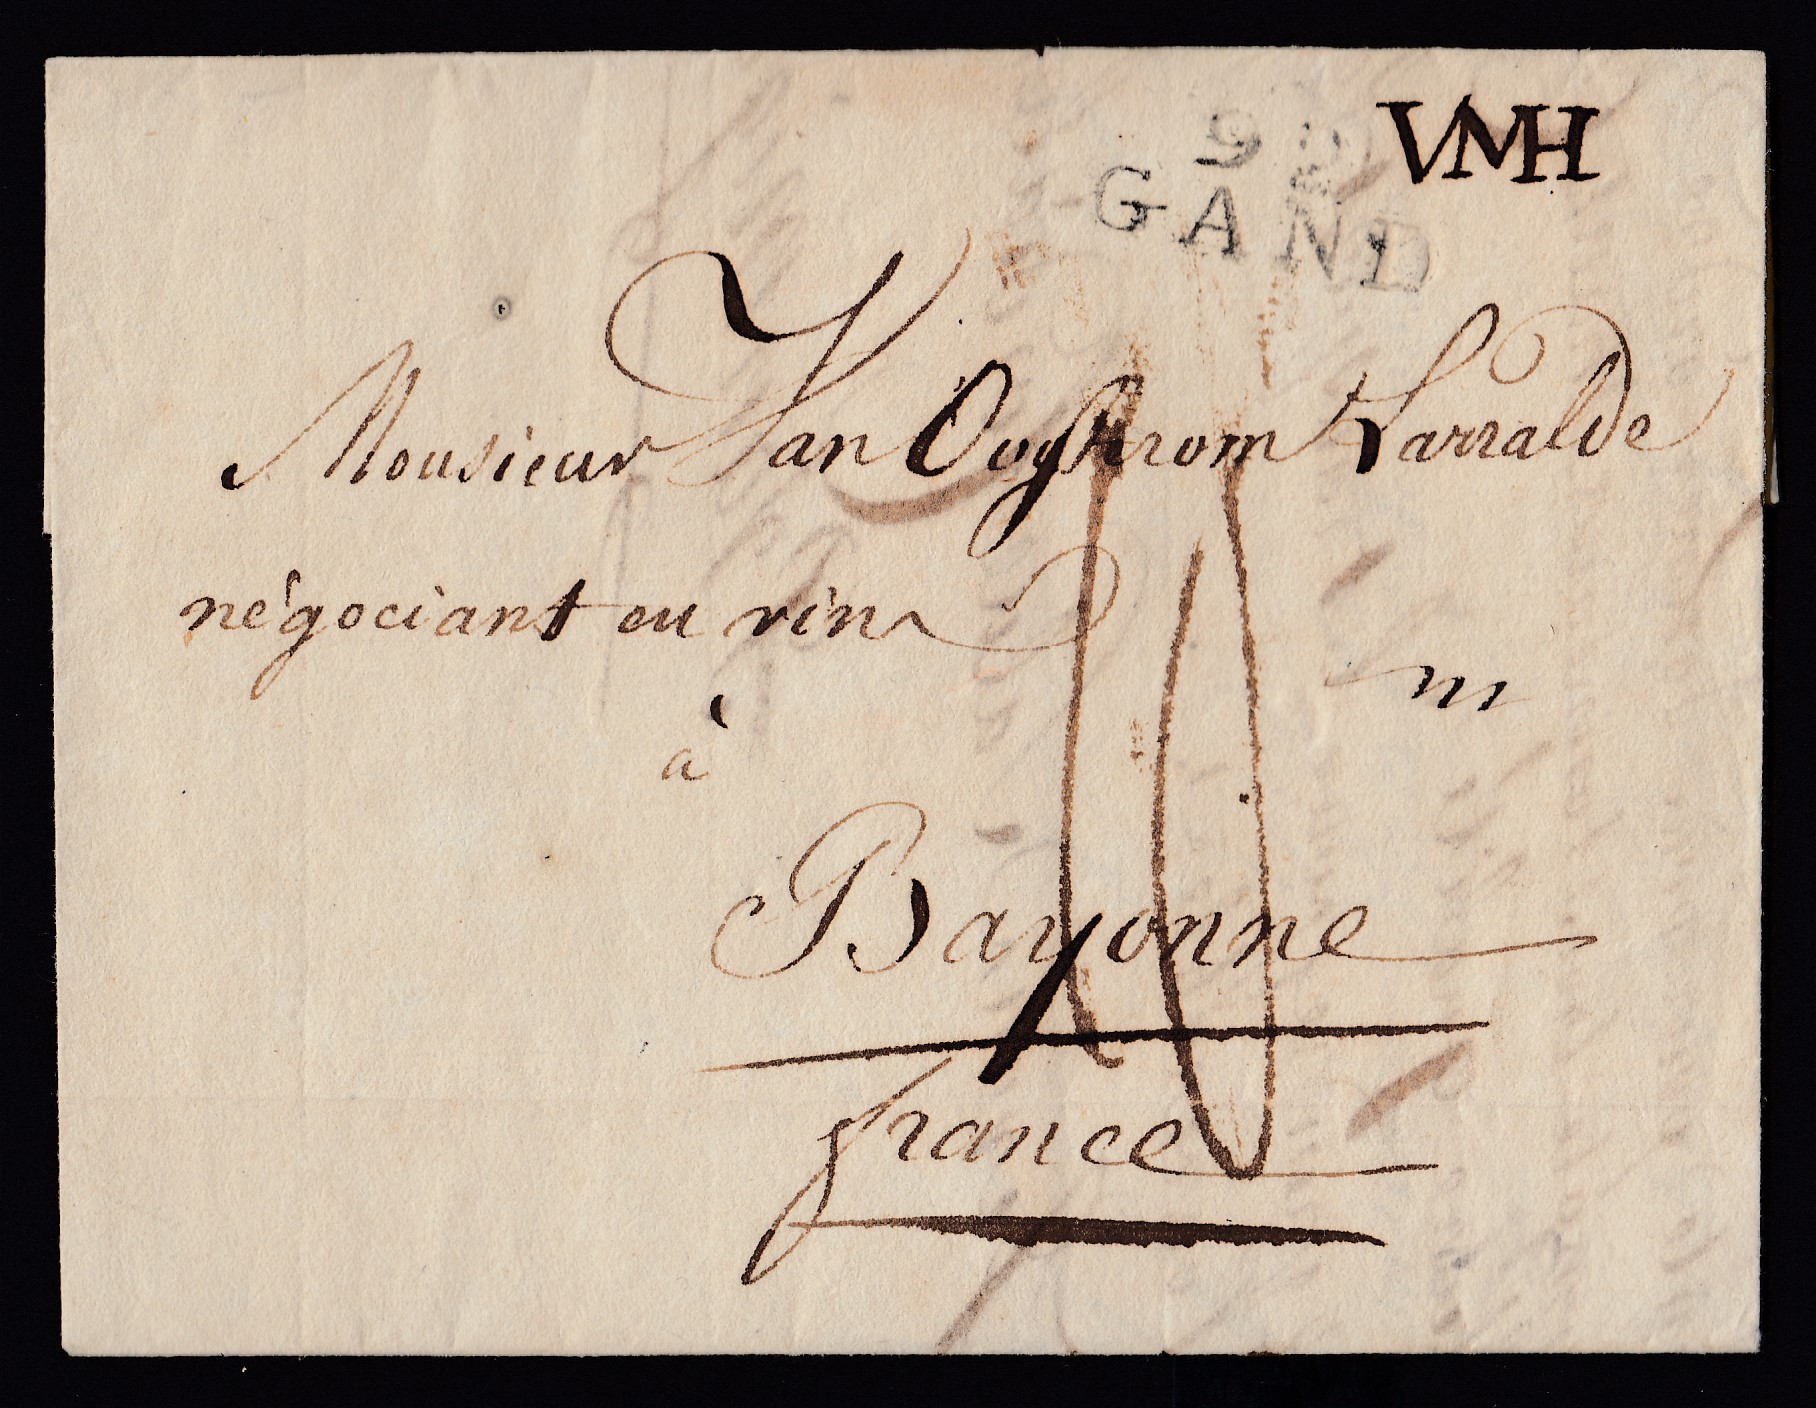 VMH
GAND
Monsieur Van Ooghtrom Larralde
négociant en vin
à
Bayonne
france